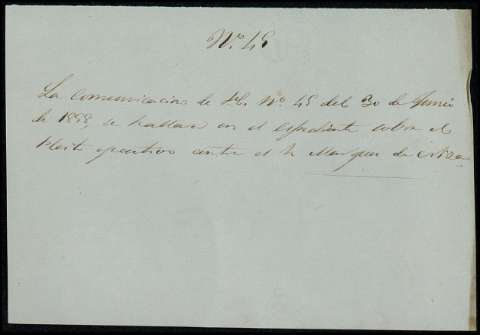 Nº. 45
La comunicacion de H. Nº 45 del 30 de Junio
de 1858, se hallará en el espediente sobre el
Pleito ejecutivo contra el S. Marques de